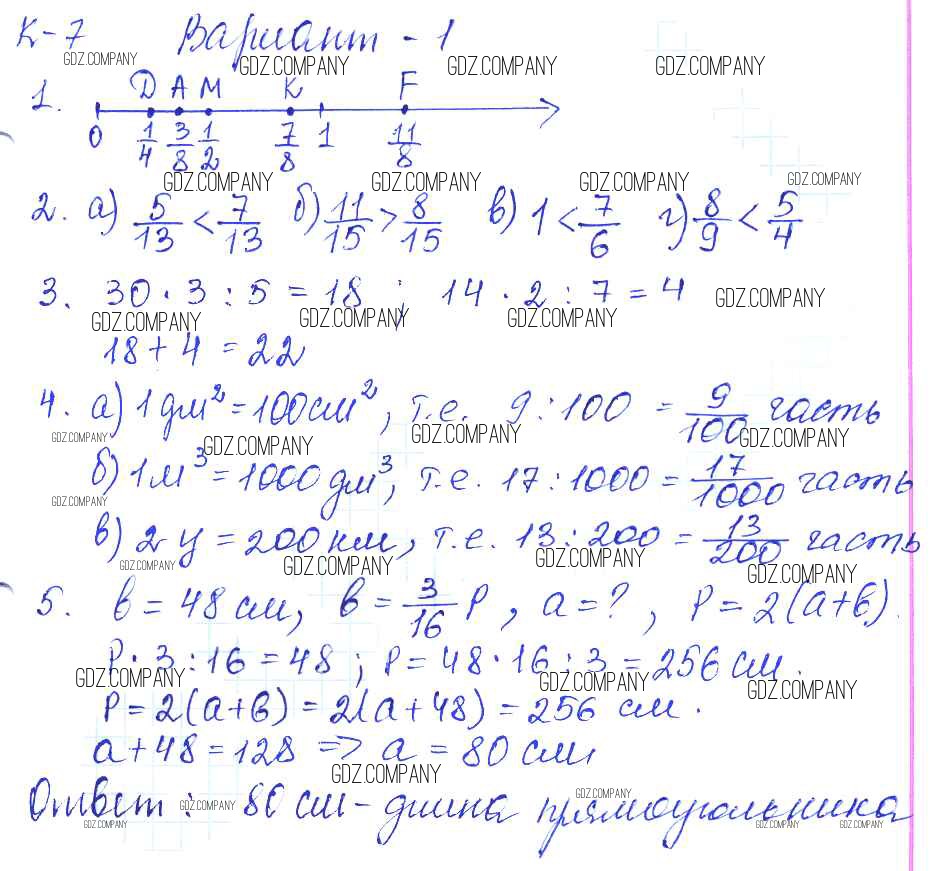 К-7 Вариант - 1
GDZ.COMPANY GDZ.COMPANY GDZ.COMPANY GDZ.COMPANY
1. D A M K F
0 1/4 3/8 1/2 7/8 1 11/8
GDZ.COMPANY GDZ.COMPANY GDZ.COMPANY GDZ.COMPANY
2. а) 5/13 < 7/13 б) 11/15 > 8/15 в) 1 < 7/6 г) 8/9 < 5/4
3. 30 · 3 : 5 = 18 ; 14 · 2 : 7 = 4 GDZ.COMPANY
GDZ.COMPANY GDZ.COMPANY GDZ.COMPANY
18 + 4 = 22
4. а) 1 дм² = 100 см², т.е. 9 : 100 = 9/100 часть
GDZ.COMPANY GDZ.COMPANY GDZ.COMPANY GDZ.COMPANY
б) 1 м³ = 1000 дм³, т.е. 17 : 1000 = 17/1000 часть
GDZ.COMPANY
в) 2 ц = 200 км, т.е. 13 : 200 = 13/200 часть
GDZ.COMPANY GDZ.COMPANY GDZ.COMPANY GDZ.COMPANY
5. в = 48 см, в = 3/16 P, а = ?, P = 2(а+в).
P · 3 : 16 = 48 ; P = 48 · 16 : 3 = 256 см.
GDZ.COMPANY GDZ.COMPANY GDZ.COMPANY
P = 2(а+в) = 2(а+48) = 256 см.
а + 48 = 128 => а = 80 см
GDZ.COMPANY
Ответ : 80 см - длина прямоугольника
GDZ.COMPANY GDZ.COMPANY
GDZ.COMPANY GDZ.COMPANY GDZ.COMPANY